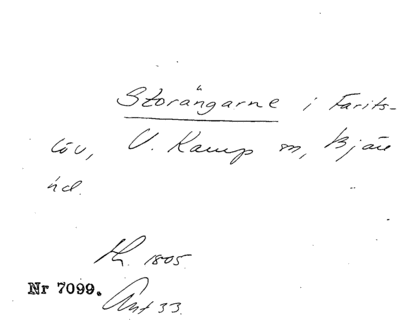 Storängarne i Farits-
löv, V. Kamp sn, Bjäre
hd.
th. 1805.
Nr 7099.
Ant 33.